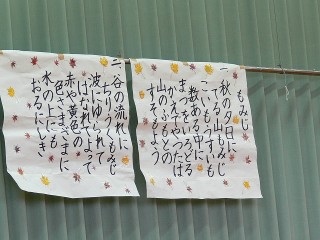 もみじ
一 秋の夕日に
てる山もみじ
こいもうすいも
数ある中に
まつをいろどる
かえでやつたは
山のふもとの
すそもよう
二 谷の流れに
ちりうくもみじ
波にゆられて
はなれてよって
赤や黄色の
色さまざまに
水の上にも
おるにしき